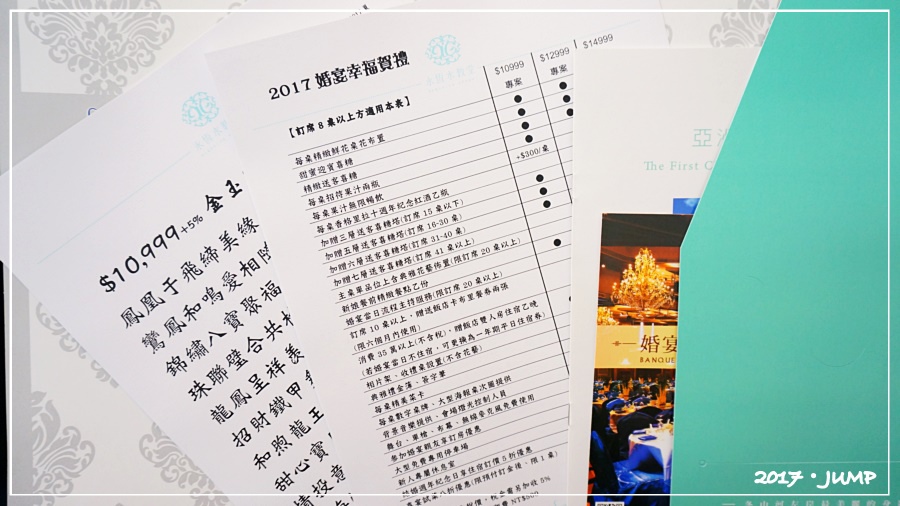 $10,999+5% 金玉
鳳凰于飛締美緣
鸞鳳和鳴愛相隨
錦繡八寶聚福
珠聯璧合共
龍鳳呈祥美
招財鐵甲
和煦龍王
甜心寶
2017 婚宴幸福賀禮
$10999 $12999 $14999
專案 專案
【訂席 8 桌以上方適用本表】
每桌精緻鮮花桌花布置
甜蜜迎賓喜糖
精緻送客喜糖
每桌招待果汁兩瓶
每桌果汁無限暢飲 +$300/桌
每桌香格里拉十週年紀念紅酒乙瓶
加贈三層送客喜糖塔(訂席 15 桌以下)
加贈五層送客喜糖塔(訂席 16-30 桌)
加贈六層送客喜糖塔(訂席 31-40 桌)
加贈七層送客喜糖塔(訂席 41 桌以上)
主桌單品位上含典雅花藝佈置(限訂席 20 桌以上)
新娘餐前精緻餐點乙份
婚宴當日流程主持服務(限訂席 20 桌以上)
訂席 10 桌以上，贈送飯店卡布里餐券兩張
(限六個月內使用)
消費 35 萬以上(不含稅)，贈飯店雙人房住宿乙晚
(若婚宴當日不住宿，可更換為一年期平日住宿券)
相片架、收禮桌設置(不含花藝)
典雅禮金簿、簽字筆
每桌精美菜卡
每桌數字桌牌、大型海報桌次圖提供
背景音樂提供、會場燈光控制人員
舞台、單槍、布幕、無線麥克風免費使用
參加婚宴親友享訂房優惠
大型免費專用停車場
新人專屬休息室
結婚週年紀念日享住宿訂價 5 折優惠
亞洲
The First C
婚宴
BANQUE
2017・JUMP